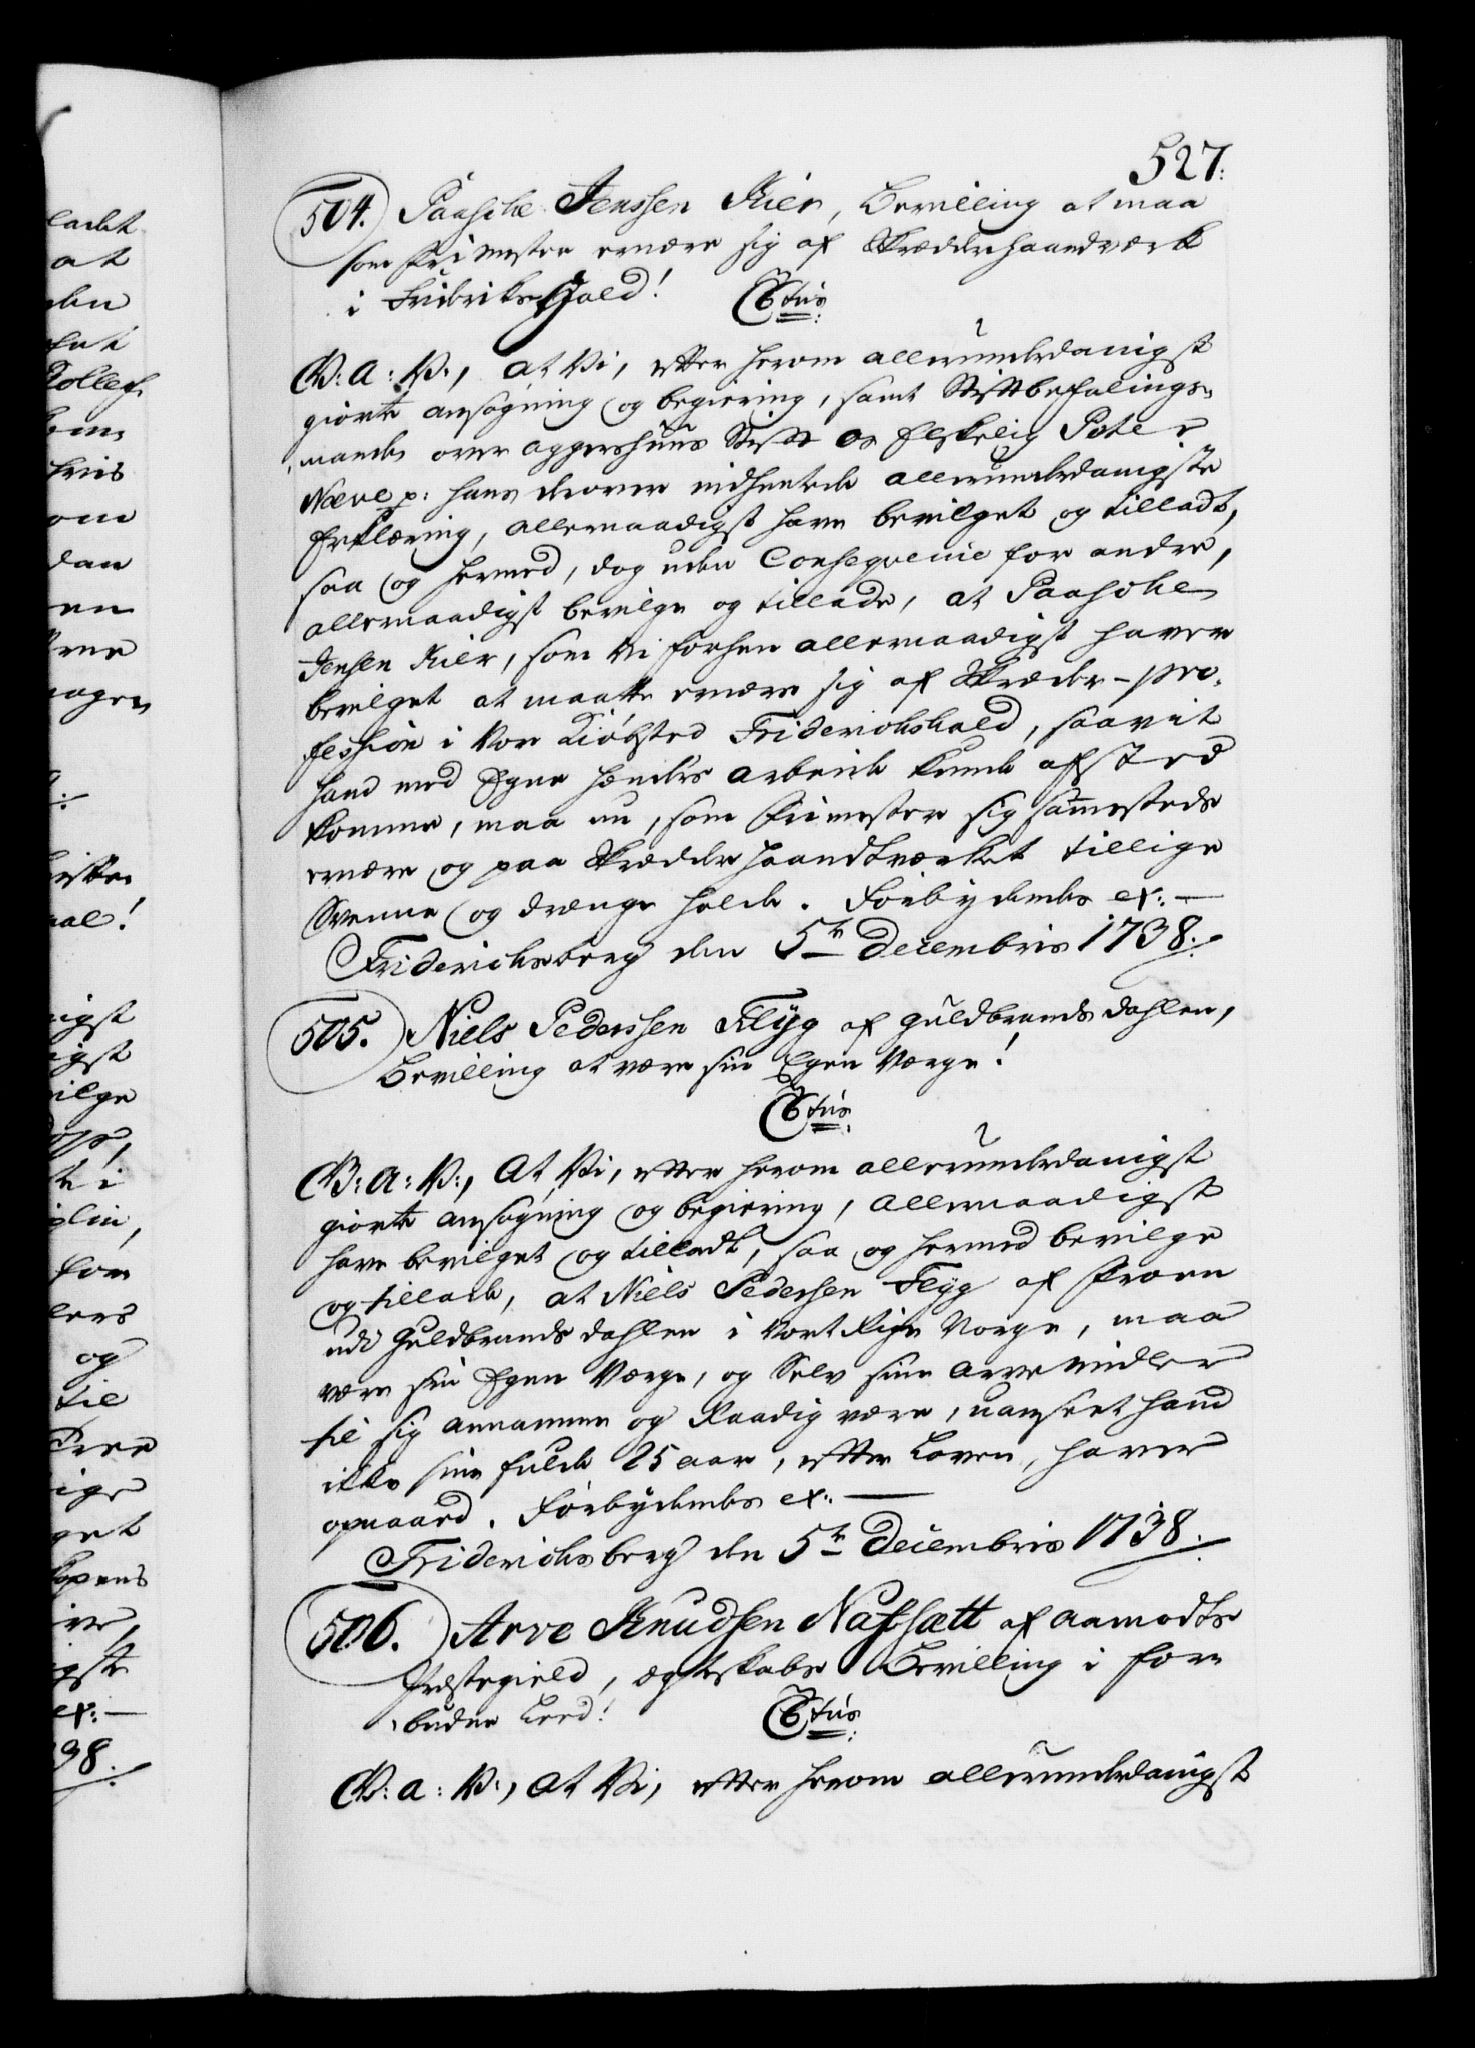 527.
504. Paasche Jenssen Kier, Bevilling at maa
som Frimester ernære sig af Skrædderhaandværk
i Friderikshald! Ctus
V: A: V:, At Vi, efter herom allerunderdanigst
giorte ansøgning og begiering, samt Stiftbefalings-
mands over Aggershuus Stift Os Elskelig Poter
Neve p: hans derover indhentede allerunderdanigste
Erklæring, allernaadigst have bevilget og tilladt,
saa og hermed, dog uden Conseqvence for andre,
allernaadigst bevilge og tillade, at Paasche
Jensen Kier, som Vi forhen allernaadigst haver
bevilget at maatte ernære sig af Skræder-pro-
fession i Vor Kiøbsted Friderichshald, saavit
hand med Egne hænders arbeide kunde afsted
komme, maa nu, som Frimester sig sammesteds
ernære og paa Skrædder haandtværket tillige
Svenne og drænge holde. Forbydendes etc: —
Friderichsberg den 5te Decembris 1738.
505. Niels Pederssen Flyg af Guldbrands dahlen,
Bevilling at være sin Egen Værge!
Ctus
V: A: V:, At Vi, efter herom allerunderdanigst
giorte ansøgning og begiering, allernaadigst
have bevilget og tilladt, saa og hermed bevilge
og tillade, at Niels Pedersen Flyg af Froen
udi Guldbrands dahlen i Vort Rige Norge, maa
være sin Egen Værge, og Selv sine arve midler
til sig annamme og Raadig være, uanseet hand
ikke sine fulde 25 aar, efter Loven, haver
opnaaed. Forbydendes etc: —
Friderichsberg den 5te Decembris 1738.
506. Arve Knudsen Nafsætt af Aamodts
Præstegield, ægteskabs Bevilling i for-
budne Leed! Ctus
V: A: V:, At Vi, efter herom allerunderdanigst